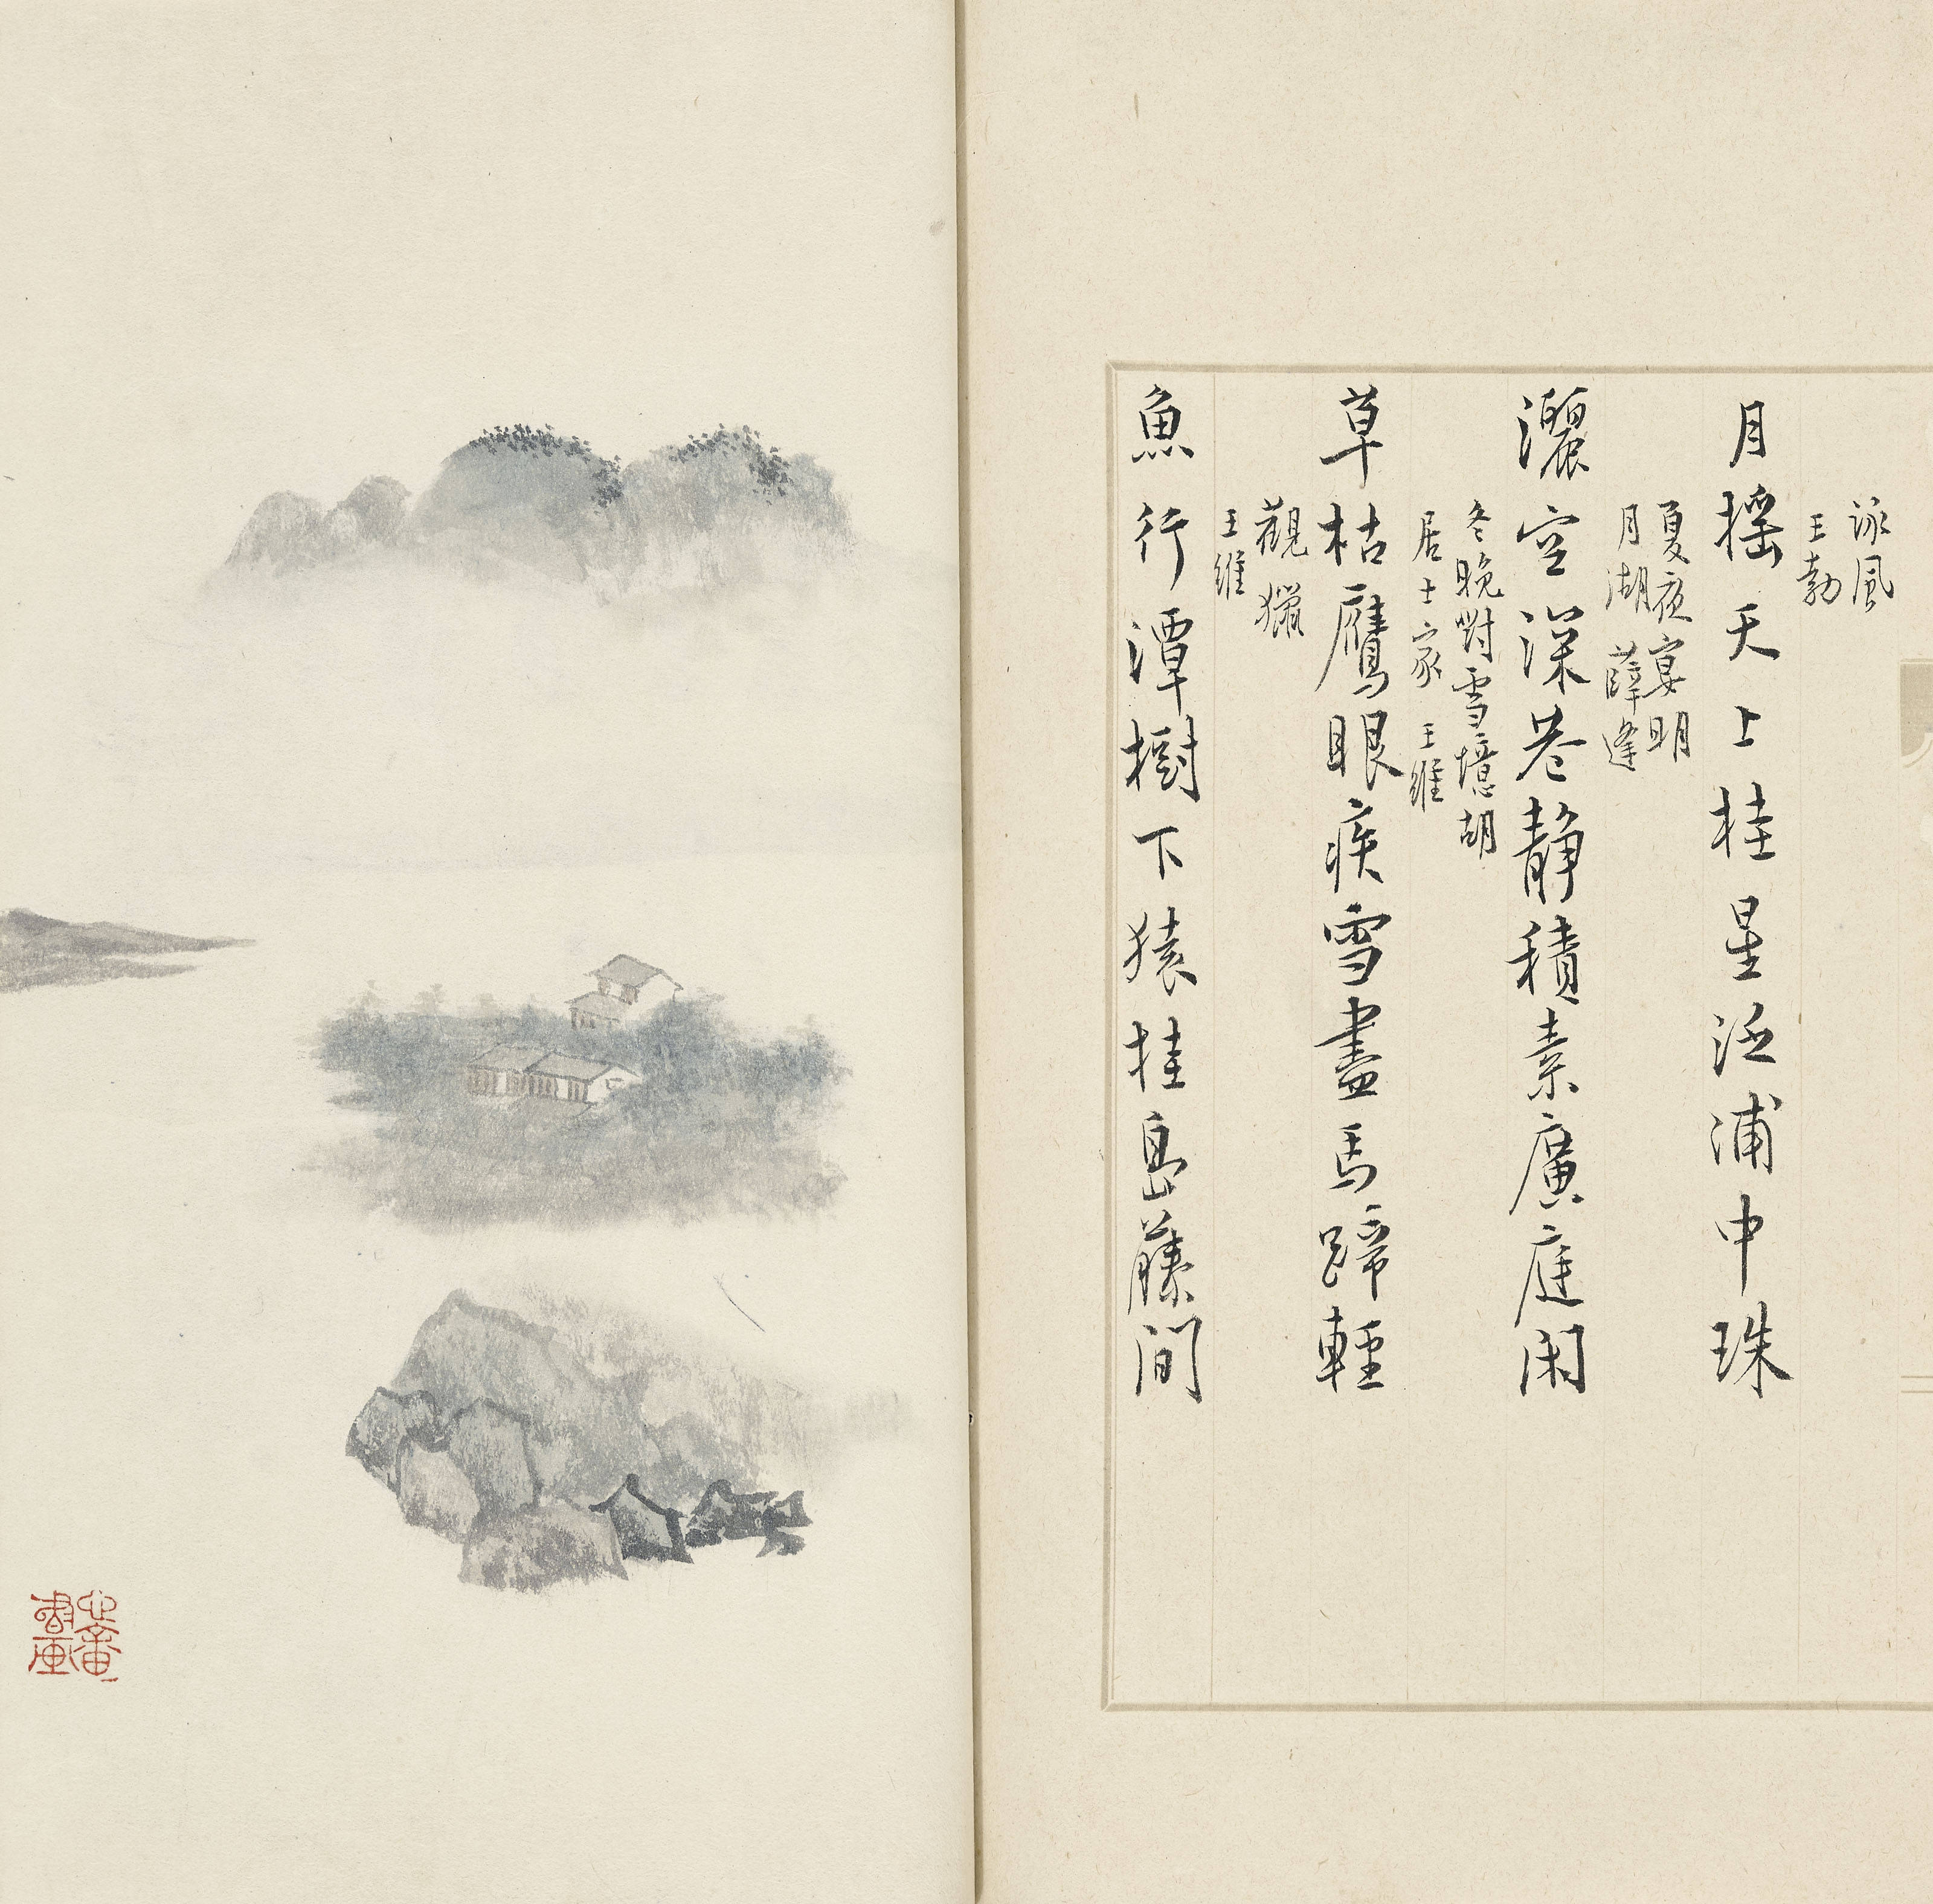 詠風
王勃
月搖天上桂星泛浦中珠
夏夜宴明
月湖 薛逢
灑空深巷靜積素廣庭閑
冬晚對雪憶胡
居士家 王維
草枯鷹眼疾雪盡馬蹄輕
觀獵
王維
魚行潭樹下猿挂島藤間